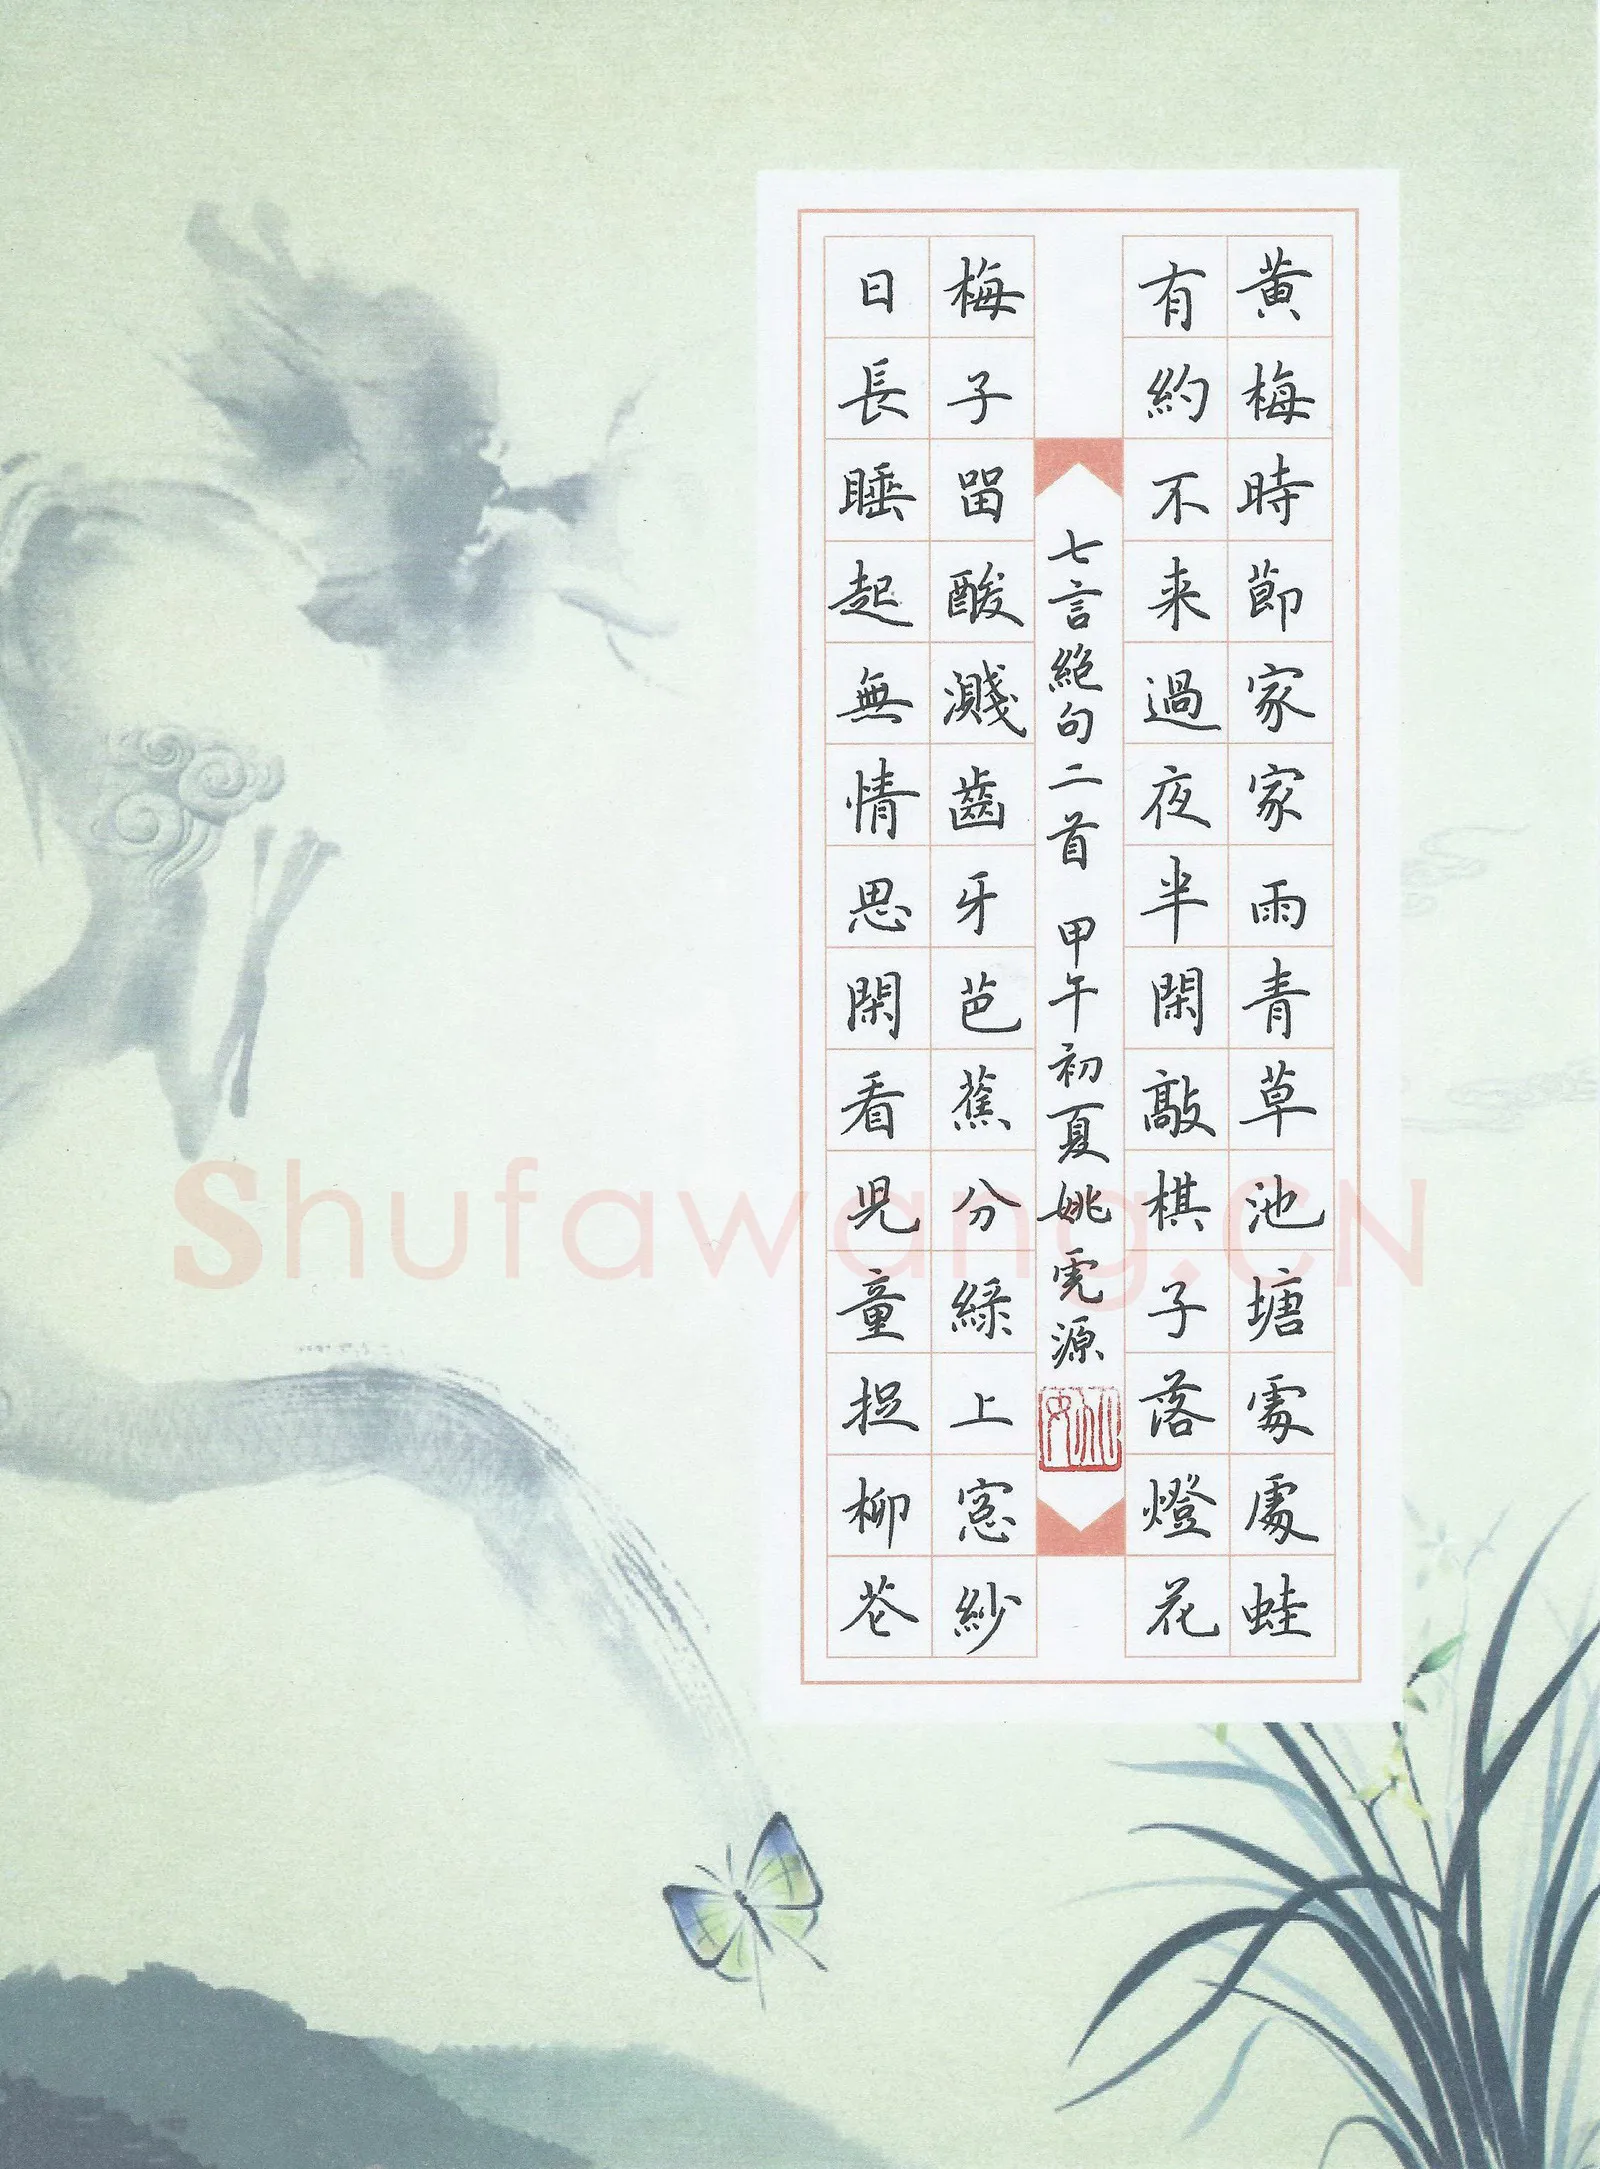 黄梅時節家家雨青草池塘處處蛙
有約不来過夜半閑敲棋子落燈花
七言絶句二首 甲午初夏姚虎源
梅子留酸濺齒牙芭蕉分緑上窓紗
日長睡起無情思閑看児童捉柳花
Shufawang.CN